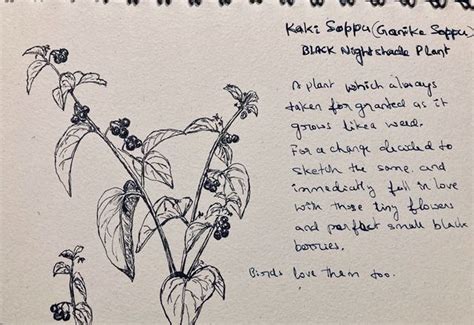 Kaki Soppu (Ganike Soppu)
BLACK Nightshade Plant
A plant which always
taken for granted as it
grows like a weed.
For a change decided to
sketch the same and
immedically fell in love
with those tiny flowers
and perfect small black
berries.
Birds love them too.